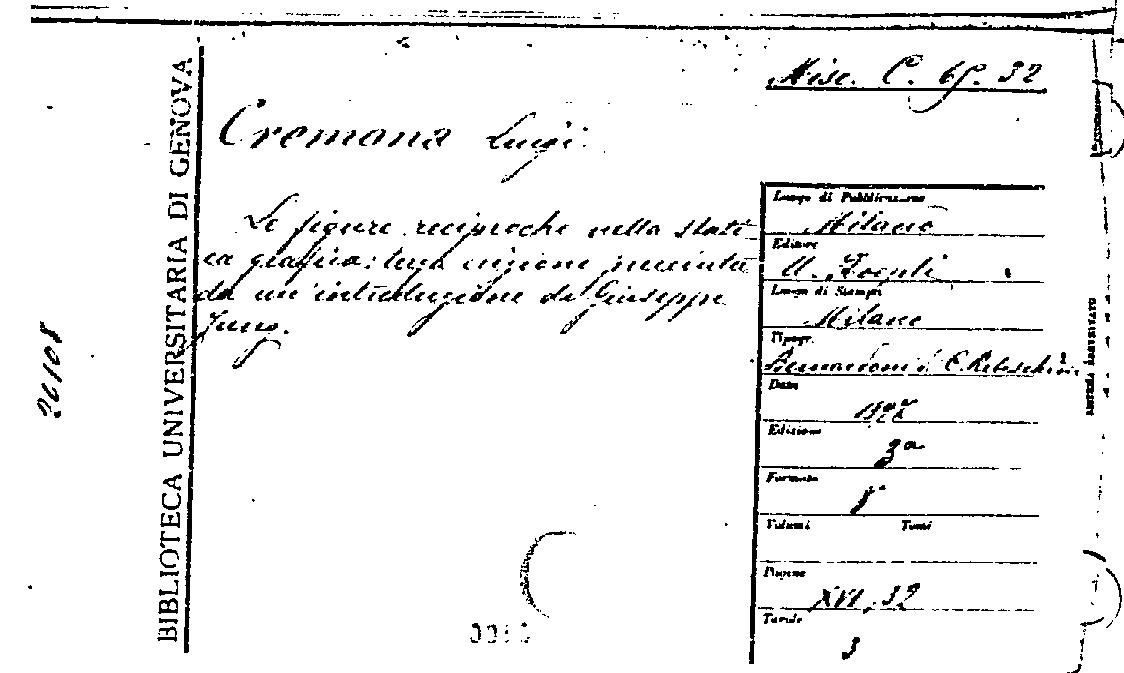 Misc. C. 65. 32
BIBLIOTECA UNIVERSITARIA DI GENOVA
Cremona Luigi
Le figure reciproche nella stati
ca grafica: terza edizione preceduta
da un'introduzione di Giuseppe
Jung.
Luogo di Pubblicazione
Milano
Editore
U. Hoepli
Luogo di Stampa
Milano
Tipogr.
Bernardoni di C. Rebeschini
Data
Edizione
3a
Formato
8°
Volumi Tomi
Pagine
XVI, 32
Tavole
3
26108